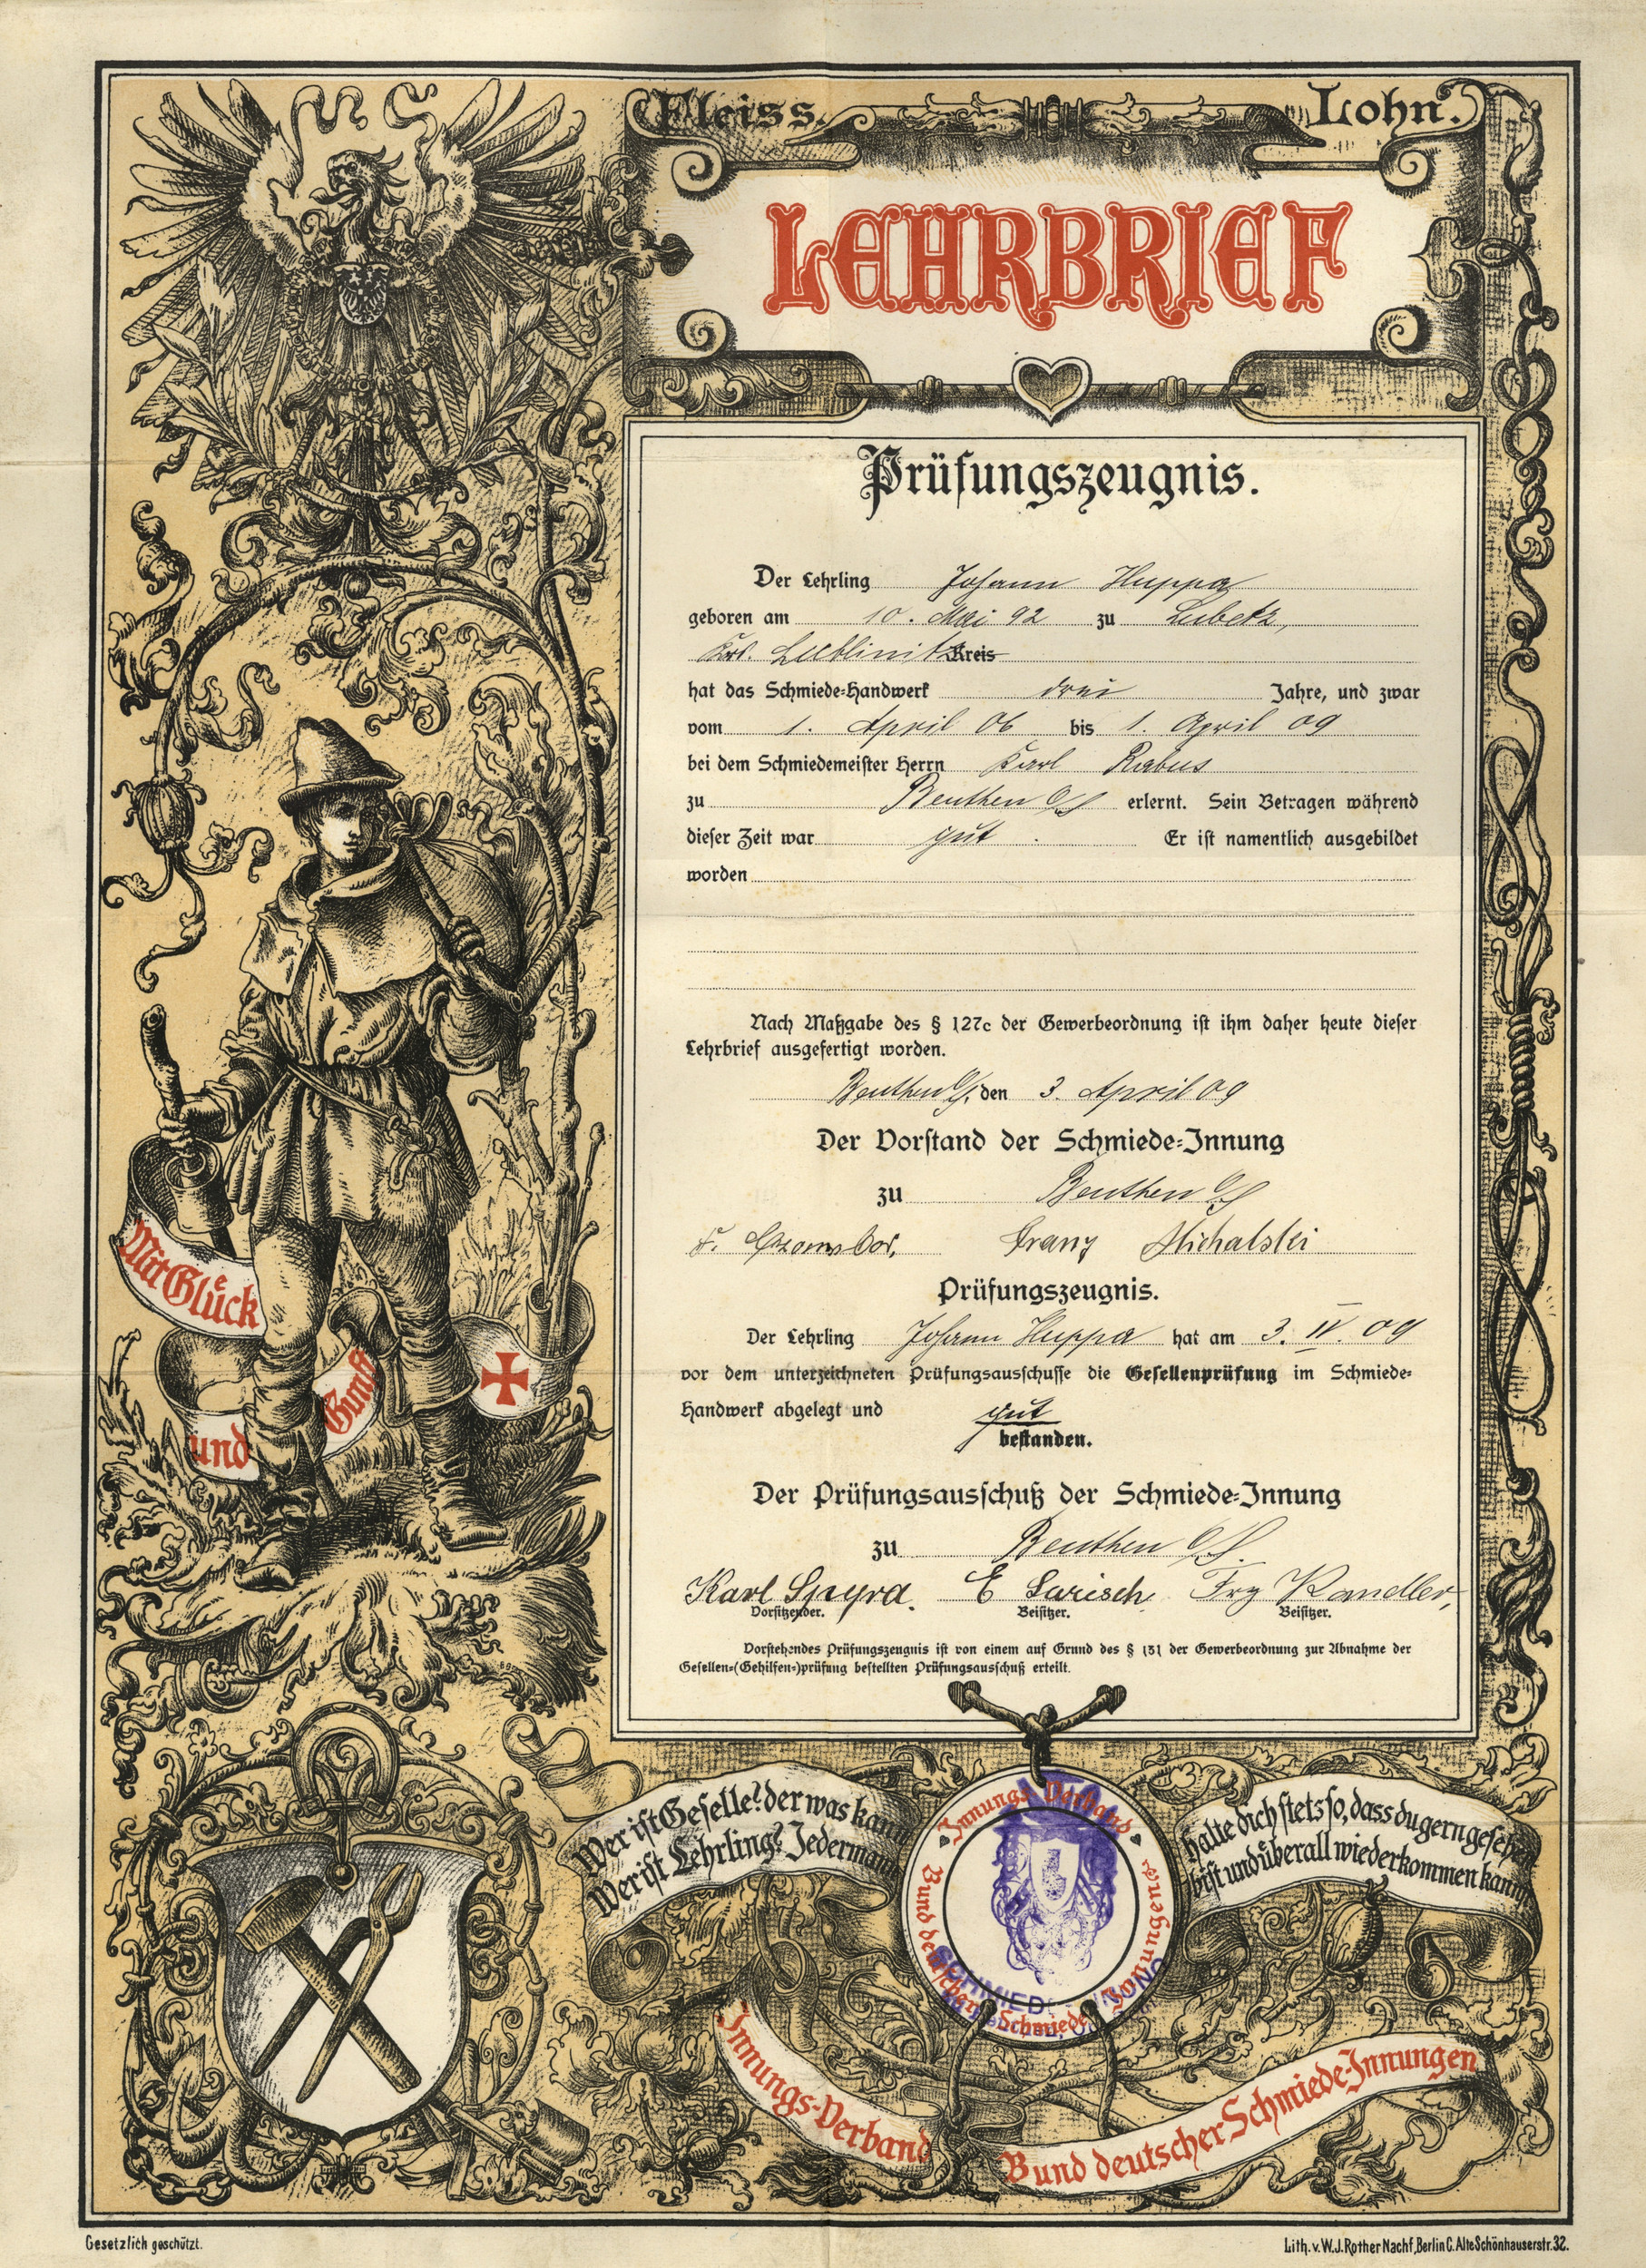 Fleiss.
Lohn.
LEHRBRIEF
Prüfungszeugnis.
Der Lehrling Johann Huppa
geboren am 10. Mai 92 zu Lubetz,
Krs. Lublinitz Kreis
hat das Schmiede=Handwerk drei Jahre, und zwar
vom 1. April 06 bis 1. April 09
bei dem Schmiedemeister Herrn Karl Rabus
zu Beuthen O/S erlernt. Sein Betragen während
dieser Zeit war gut. Er ist namentlich ausgebildet
worden
Nach Maßgabe des § 127c der Gewerbeordnung ist ihm daher heute dieser
Lehrbrief ausgefertigt worden.
Beuthen O/S, den 3. April 09
Der Vorstand der Schmiede=Innung
zu Beuthen O/S
F. Franz Michalski
Prüfungszeugnis.
Der Lehrling Johann Huppa hat am 3. IV. 09
vor dem unterzeichneten Prüfungsausschusse die Gesellenprüfung im Schmiede=
Handwerk abgelegt und gut
bestanden.
Der Prüfungsausschuß der Schmiede=Innung
zu Beuthen O/S.
Karl Spyra. E Frz Kandler,
Vorsitzender. Beisitzer. Beisitzer.
Vorstehendes Prüfungszeugnis ist von einem auf Grund des § 131 der Gewerbeordnung zur Abnahme der
Gesellen=(Gehilfen=)prüfung bestellten Prüfungsausschuß erteilt.
Mit Glück
und
Gunst
Wer ist Geselle? der was kann
Wer ist Lehrling? Jedermann
Innungs Verband
Bund deutscher Schmiede Innungen
SCHMIEDE INNUNG
halte dich stets so, dass du gern gesehen
bist und überall wiederkommen kannst
Innungs-Verband
Bund deutscher Schmiede-Innungen
Gesetzlich geschützt.
Lith. v. W. J. Rother Nachf, Berlin C. Alte Schönhauserstr. 32.